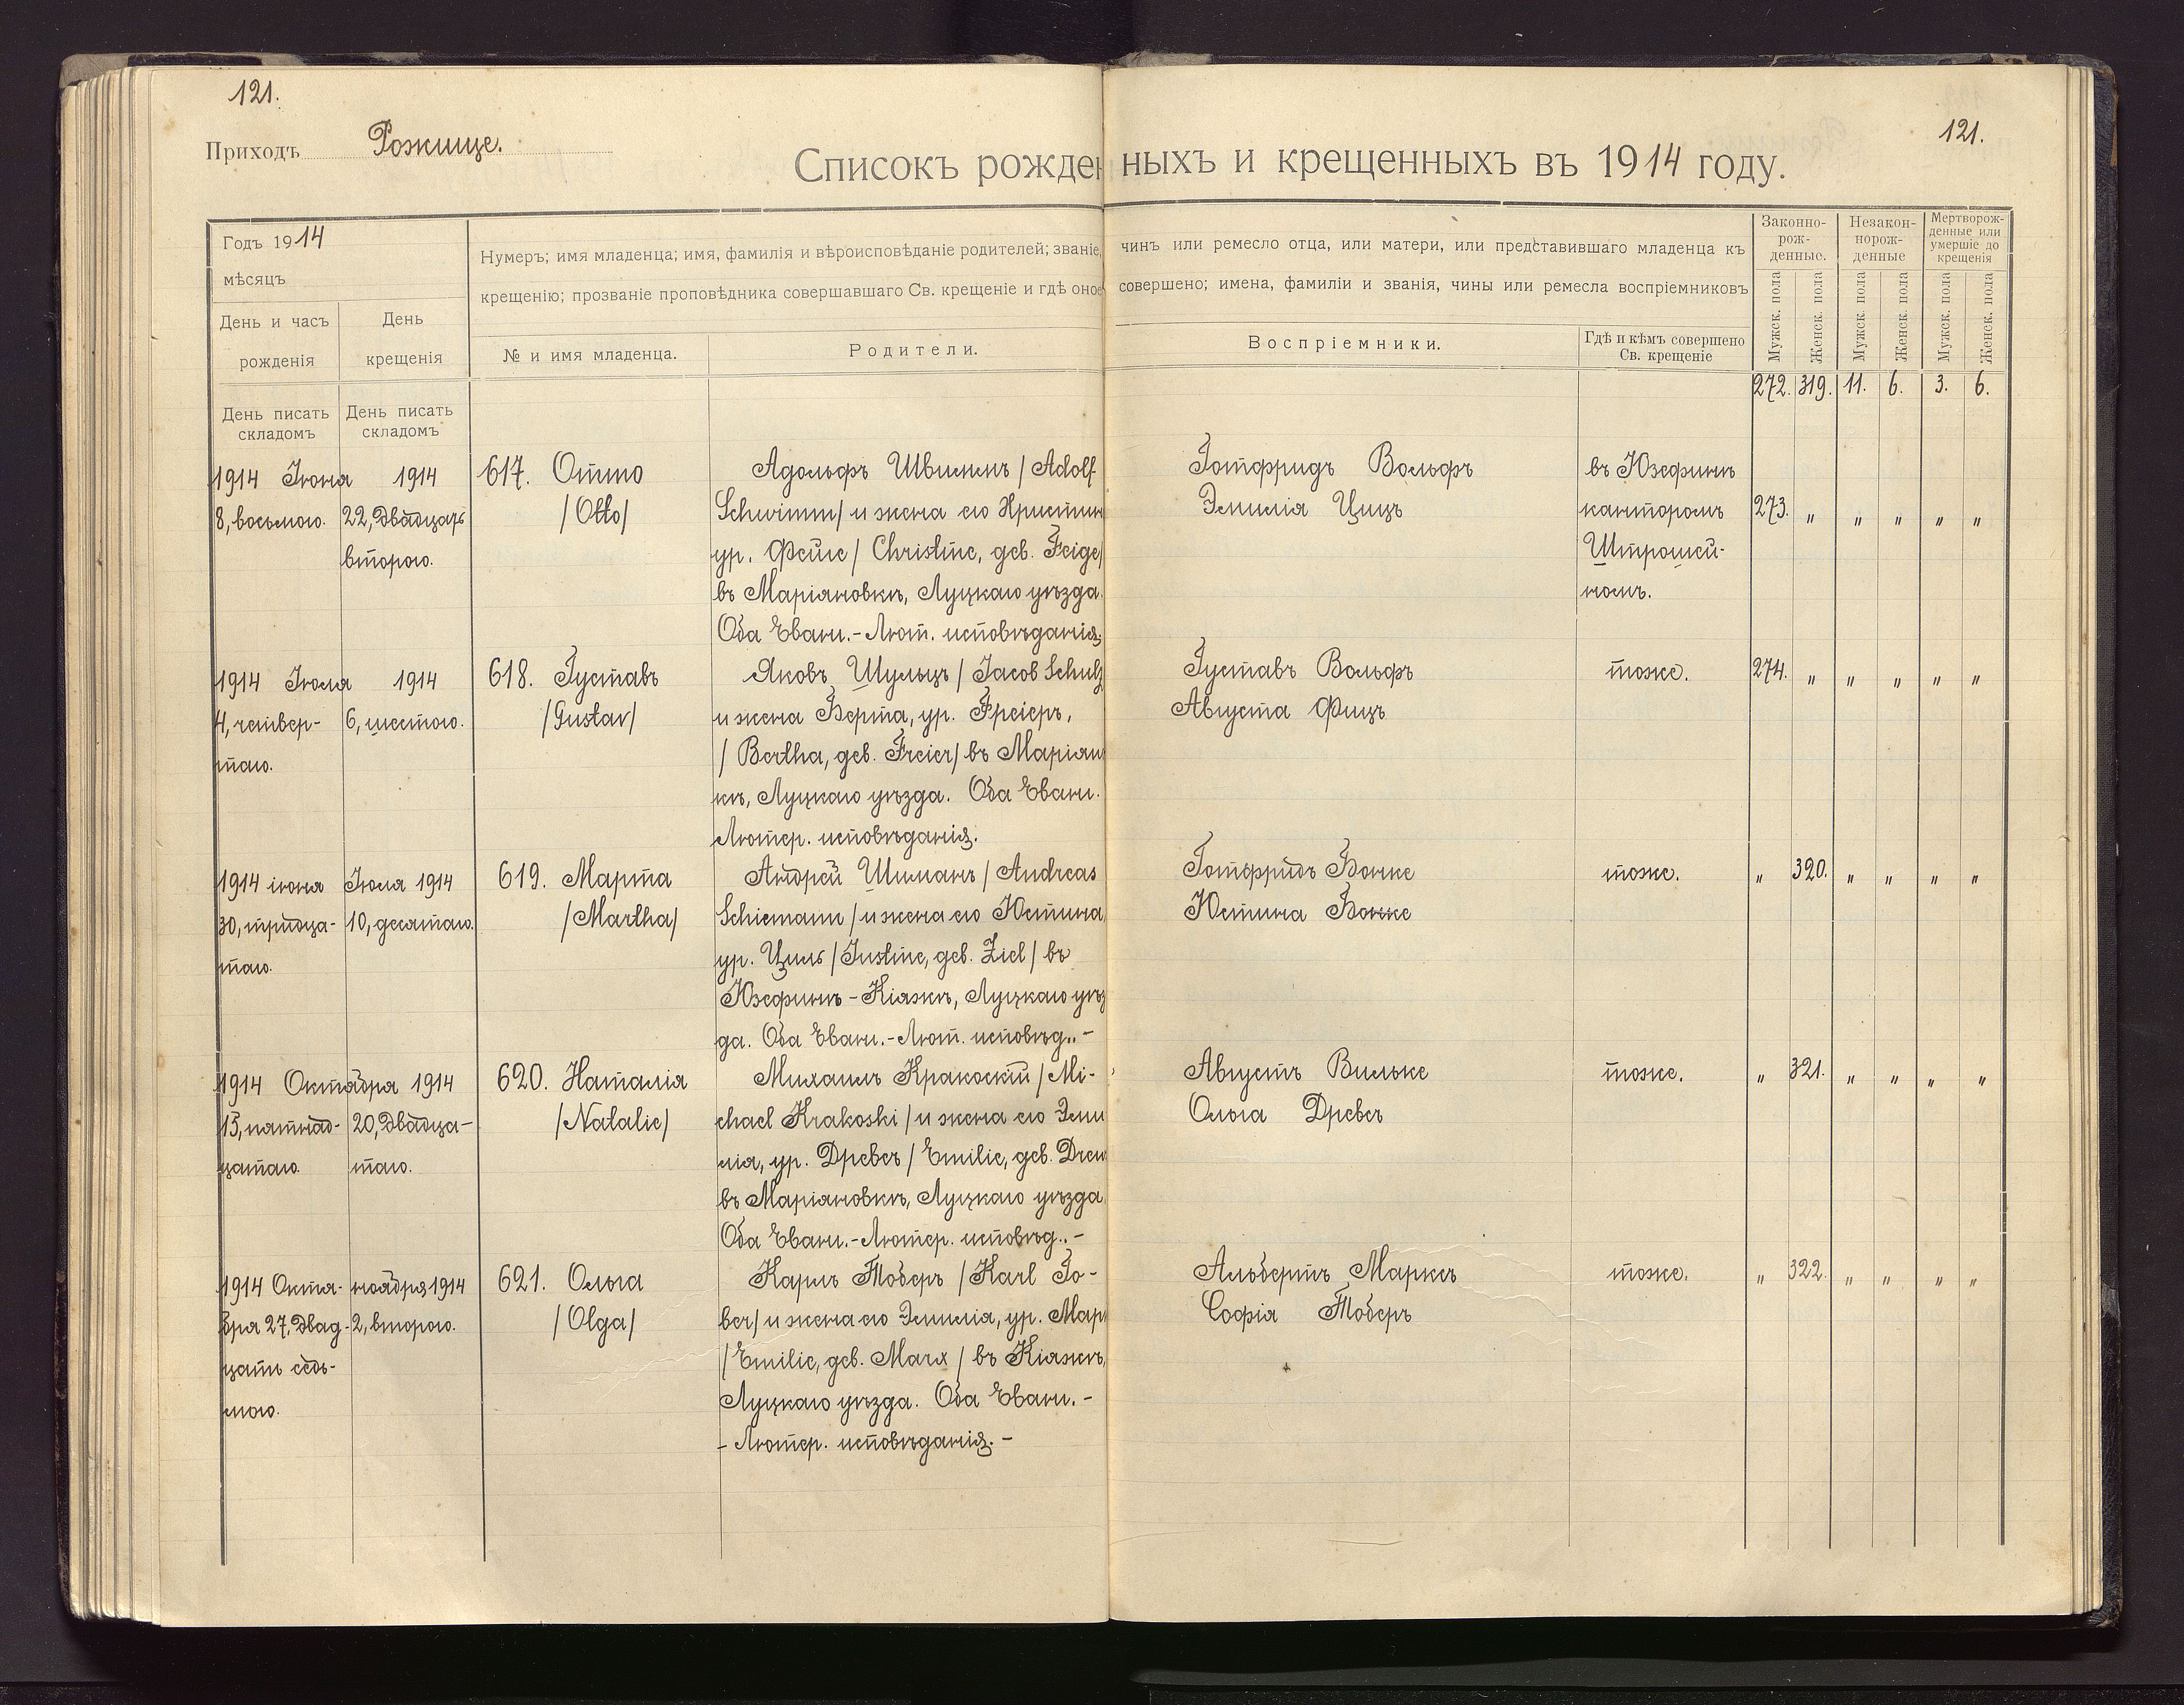 121.
121.
Приходъ Рожище.
Списокъ рожденныхъ и крещенныхъ въ 1914 году.
Годъ 1914
мѣсяцъ
День и часъ рожденія
День крещенія
Нумеръ; имя младенца; имя, фамилія и вѣроисповѣданіе родителей; званіе, чинъ или ремесло отца, или матери, или представившаго младенца къ
крещенію; прозваніе проповѣдника совершавшаго Св. крещеніе и гдѣ оное совершено; имена, фамиліи и званія, чины или ремесла воспріемниковъ
№ и имя младенца.
Родители.
Воспріемники.
Гдѣ и кѣмъ совершено
Св. крещеніе
Законно-
рож-
денные.
Незакон-
норож-
денные
Мертворож-
денные или
умершіе до
крещенія
Мужск. пола
Женск. пола
Мужск. пола
Женск. пола
Мужск. пола
Женск. пола
272. 319. 11. 6. 3. 6.
День писать
складомъ
День писать
складомъ
1914 Іюня
8, восьмого.
1914
22, двадцать
второго.
617. Отто
/Otto/
Адольфъ Швиммъ / Adolf
Schwimm/ и жена его Христин
ур. Фейге / Christine, geb. Feige/
въ Маріяновкѣ, Луцкаго уѣзда.
Оба Еванг.-Лют. исповѣданія.
Готфридъ Вольфъ
Эмилія Цицъ
въ Юзефинѣ
канторомъ
Штрошей-
номъ.
273. " " " " "
1914 Іюля
4, четвер-
таго.
1914
6, шестого.
618. Густавъ
/Gustav/
Яковъ Шульцъ / Jacob Schulz
и жена Берта, ур. Фрейеръ,
/ Bertha, geb. Freier/ въ Маріян
кѣ, Луцкаго уѣзда. Оба Еванг.
Лютер. исповѣданія.
Густавъ Вольфъ
Августа Фицъ
тоже.
274. " " " " "
1914 іюня
30, тридца-
таго.
Іюля 1914
10, десятаго.
619. Марта
/Martha/
Андрей Шиманъ / Andreas
Schiemann / и жена его Юстина,
ур. Циль / Justine, geb. Ziel / въ
Юзефинѣ-Кіяжѣ, Луцкаго уѣз
да. Оба Еванг.-Лют. исповѣд..-
Готфридъ Бонке
Юстина Бонке
тоже.
" 320. " " " "
1914 Октября
15, пятнад-
цатаго
1914
20, двадца-
таго.
620. Наталія
/Natalie/
Михаилъ Кракоскій / Mi-
chael Krakoski / и жена его Эми
лія, ур. Древсъ / Emilie, geb. Drew
въ Маріяновкѣ, Луцкаго уѣзда
Оба Еванг.-Лютер. исповѣд..-
Августъ Вильке
Ольга Древсъ
тоже.
" 321. " " " "
1914 Октя-
бря 27, двад-
цать седь-
мого.
ноября 1914
2, второго.
621. Ольга
/Olga/
Карлъ Тоберъ / Karl To-
ber/ и жена его Эмилія, ур. Мар
/ Emilie, geb. Marx / въ Кіяжѣ,
Луцкаго уѣзда. Оба Еванг.-
- Лютер. исповѣданія.-
Альбертъ Марксъ
Софія Тоберъ
тоже.
" 322. " " " "